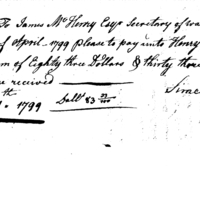 To James McHenry Esqr Secretary of war
of April - 1799 Please to pay unto Henry
m of Eighty three Dollars & thirty three
e received
th
1799
Doll's 83 33/100
Sime